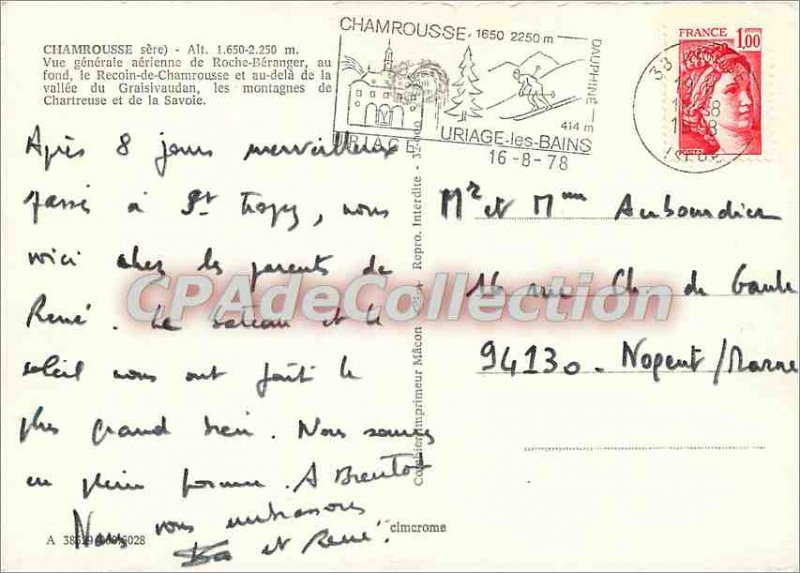 CHAMROUSSE sère) - Alt. 1.650-2.250 m.
Vue générale aérienne de Roche-Béranger, au
fond, le Recoin-de-Chamrousse et au-delà de la
vallée du Graisivaudan, les montagnes de
Chartreuse et de la Savoie.
CHAMROUSSE. 1650 2250 m
DAUPHINÉ
414 m
URIAGE
URIAGE-les-BAINS
16-8-78
38
ISÈRE
FRANCE 1,00
POSTES
Après 8 jours merveilleux
passé à St Tropez, nous
voici chez les parents de
René. Le bateau et le
soleil nous ont fait le
plus grand bien. Nous sommes
en pleine forme. A Bientôt
Nous vous embrassons
et René.
Mr et Mme Aubourdier
16 rue Ch. de Gaule
94130 - Nogent/Marne
Combier imprimeur Mâcon
Repro. Interdite -
cimcrome
A 38529 6028
CPAdeCollection